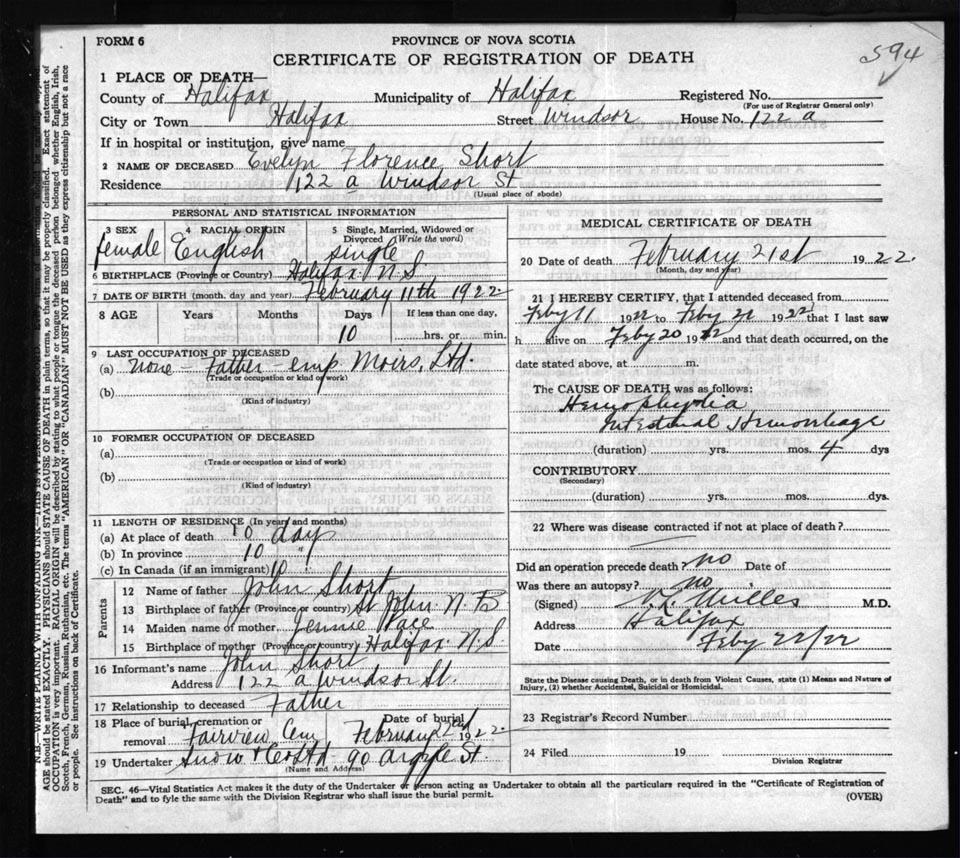 FORM 6
PROVINCE OF NOVA SCOTIA
594
CERTIFICATE OF REGISTRATION OF DEATH
1 PLACE OF DEATH—
County of Halifax Municipality of Halifax Registered No.
(For use of Registrar General only)
City or Town Halifax Street Windsor House No. 122 a
If in hospital or institution, give name
2 NAME OF DECEASED Evelyn Florence Short
Residence 122 a Windsor St
(Usual place of abode)
PERSONAL AND STATISTICAL INFORMATION
3 SEX 4 RACIAL ORIGIN 5 Single, Married, Widowed or Divorced (Write the word)
female English Single
6 BIRTHPLACE (Province or Country) Halifax N.S
7 DATE OF BIRTH (month, day and year) February 11th 1922
8 AGE Years Months Days If less than one day,
10 hrs. or min.
9 LAST OCCUPATION OF DECEASED
(a) None - Father - emp Moirs, Ltd.
(Trade or occupation or kind of work)
(b)
(Kind of industry)
10 FORMER OCCUPATION OF DECEASED
(a)
(Trade or occupation or kind of work)
(b)
(Kind of industry)
11 LENGTH OF RESIDENCE (In years and months)
(a) At place of death 10 days
(b) In province 10 "
(c) In Canada (if an immigrant) 10
Parents
12 Name of father John Short
13 Birthplace of father (Province or country) St John N.B
14 Maiden name of mother Jennie
15 Birthplace of mother (Province or country) Halifax N.S
16 Informant's name John Short
Address 122 a Windsor St.
17 Relationship to deceased Father
18 Place of burial, cremation or removal Fairview Cem Date of burial February 22nd 1922
19 Undertaker Snow & Co Ltd 90 Argyle St.
(Name and Address)
MEDICAL CERTIFICATE OF DEATH
20 Date of death February 21st 1922.
(Month, day and year)
21 I HEREBY CERTIFY, that I attended deceased from
Feby 11 1922 to Feby 21 1922 that I last saw
h alive on Feby 20 1922 and that death occurred, on the
date stated above, at m.
The CAUSE OF DEATH was as follows:
Intestinal Hemorrhage
(duration) yrs. mos. 4 dys
CONTRIBUTORY
(Secondary)
(duration) yrs. mos. dys.
22 Where was disease contracted if not at place of death?
Did an operation precede death? no Date of
Was there an autopsy? no
(Signed) M.D.
Address Halifax
Date Feby 22/22
State the Disease causing Death, or in death from Violent Causes, state (1) Means and Nature of
Injury, (2) whether Accidental, Suicidal or Homicidal.
23 Registrar's Record Number
24 Filed 19
Division Registrar
SEC. 46—Vital Statistics Act makes it the duty of the Undertaker or person acting as Undertaker to obtain all the particulars required in the "Certificate of Registration of
Death" and to fyle the same with the Division Registrar who shall issue the burial permit.
(OVER)
N.B.—WRITE PLAINLY WITH UNFADING INK—THIS IS A PERMANENT RECORD.
AGE should be stated EXACTLY. PHYSICIANS should STATE CAUSE OF DEATH in plain terms, so that it may be properly classified. Exact statement of
OCCUPATION is very important. RACIAL ORIGIN will be described by stating to what people or tongue the deceased person belonged whether English, Irish,
Scotch, French, German, Russian, Ruthenian, etc. The terms "AMERICAN" OR "CANADIAN" MUST NOT BE USED as they express citizenship but not a race
or people. See instructions on back of Certificate.